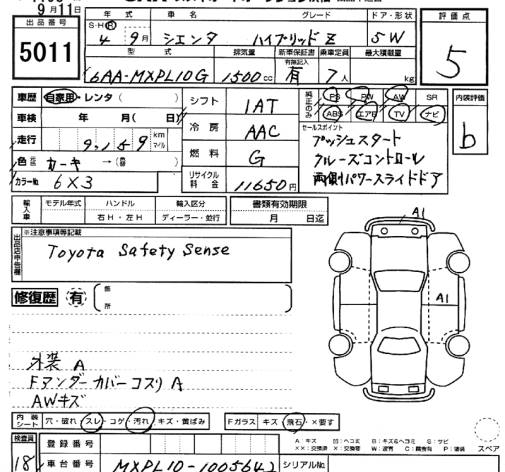 9月11日
出品番号
5011
年 式 車 名 グレード ドア・形状
S・H・R 4年 9月 シエンタ ハイブリッドZ 5W
型 式 排気量 新車保証書 乗車定員 最大積載量
有無記入
6AA-MXPL10G 1500cc 有 7人 kg
評価点
5
車歴 自家用・レンタ( )
車検 年 月( 日)
走行 9,159 km マイル
色 カーキ → (替)
カラーNo 6X3
シフト 1AT
冷房 AAC
燃料 G
リサイクル料金 11650円
純正のみ PS PW AW SR
ABS エアB TV ナビ
セールスポイント
プッシュスタート
クルーズコントロール
両側パワースライドドア
内装評価
b
輸入車 モデル年式 ハンドル 輸入区分 書類有効期限
右H・左H ディーラー・並行 月 日迄
出品店申告欄 ※注意事項等記載
Toyota Safety Sense
修復歴 有 箇所
A1
A1
外装 A
Fアンダーカバーコスリ A
AWキズ
内装シート 穴・破れ スレ・コゲ 汚れ キズ・黄ばみ Fガラス キズ 飛石・×要す
検査員 18
登録番号
車台番号 MXPL10-1005642 シリアルNo.
A:キズ 凹:ヘコミ B:キズ&ヘコミ S:サビ
××:交換済 ×:交換要 W:波有 C:腐食有 P:塗装
スペア